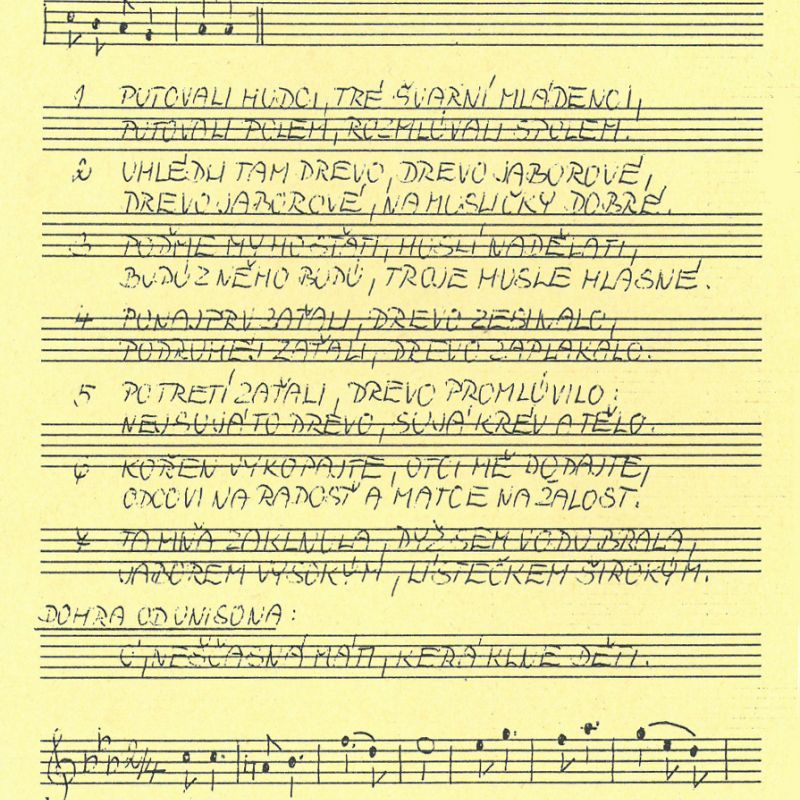 1 PUTOVALI HUDCI, TRÉ ŠVARNÍ MLÁDENCI,
PUTOVALI POLEM, ROZMLÚVALI SPOLEM.
2 UHLÉDLI TAM DREVO, DREVO JABOROVÉ,
DREVO JABOROVÉ, NA HUSLIČKY DOBRÉ.
3 POĎME MY HO SŤATI, HUSLÍ NADĚLATI,
BUDÚ Z NĚHO BUDÚ, TROJE HUSLE HLASNÉ.
4 PONAJPRV ZAŤALI, DREVO ZESINALO,
PODRUHÉJ ZAŤALI, DREVO ZAPLAKALO.
5 POTRETÍ ZAŤALI, DREVO PROMLÚVILO:
NEJSU JÁ TO DREVO, SU JÁ KRÉV A TĚLO.
6 KOŘEN VYKOPAJTE, OTCI MĚ DODAJTE,
ODCOVI NA RADOSŤ A MATCE NA ŽALOST.
7 TA MŇA ZAKLNULA, DYŽ SEM VODU BRALA,
JABOREM VYSOKÝM, LÍSTEČKEM ŠIROKÝM.
DOHRA OD UNISONA:
Ó, NEŠČASNÁ MÁTI, KERÁ KLNE DĚTI.
2/4